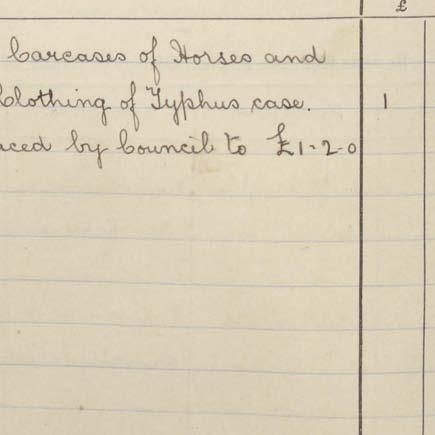 £
Carcases of Horses and
Clothing of Typhus case. 1
by Council to £1-2-0